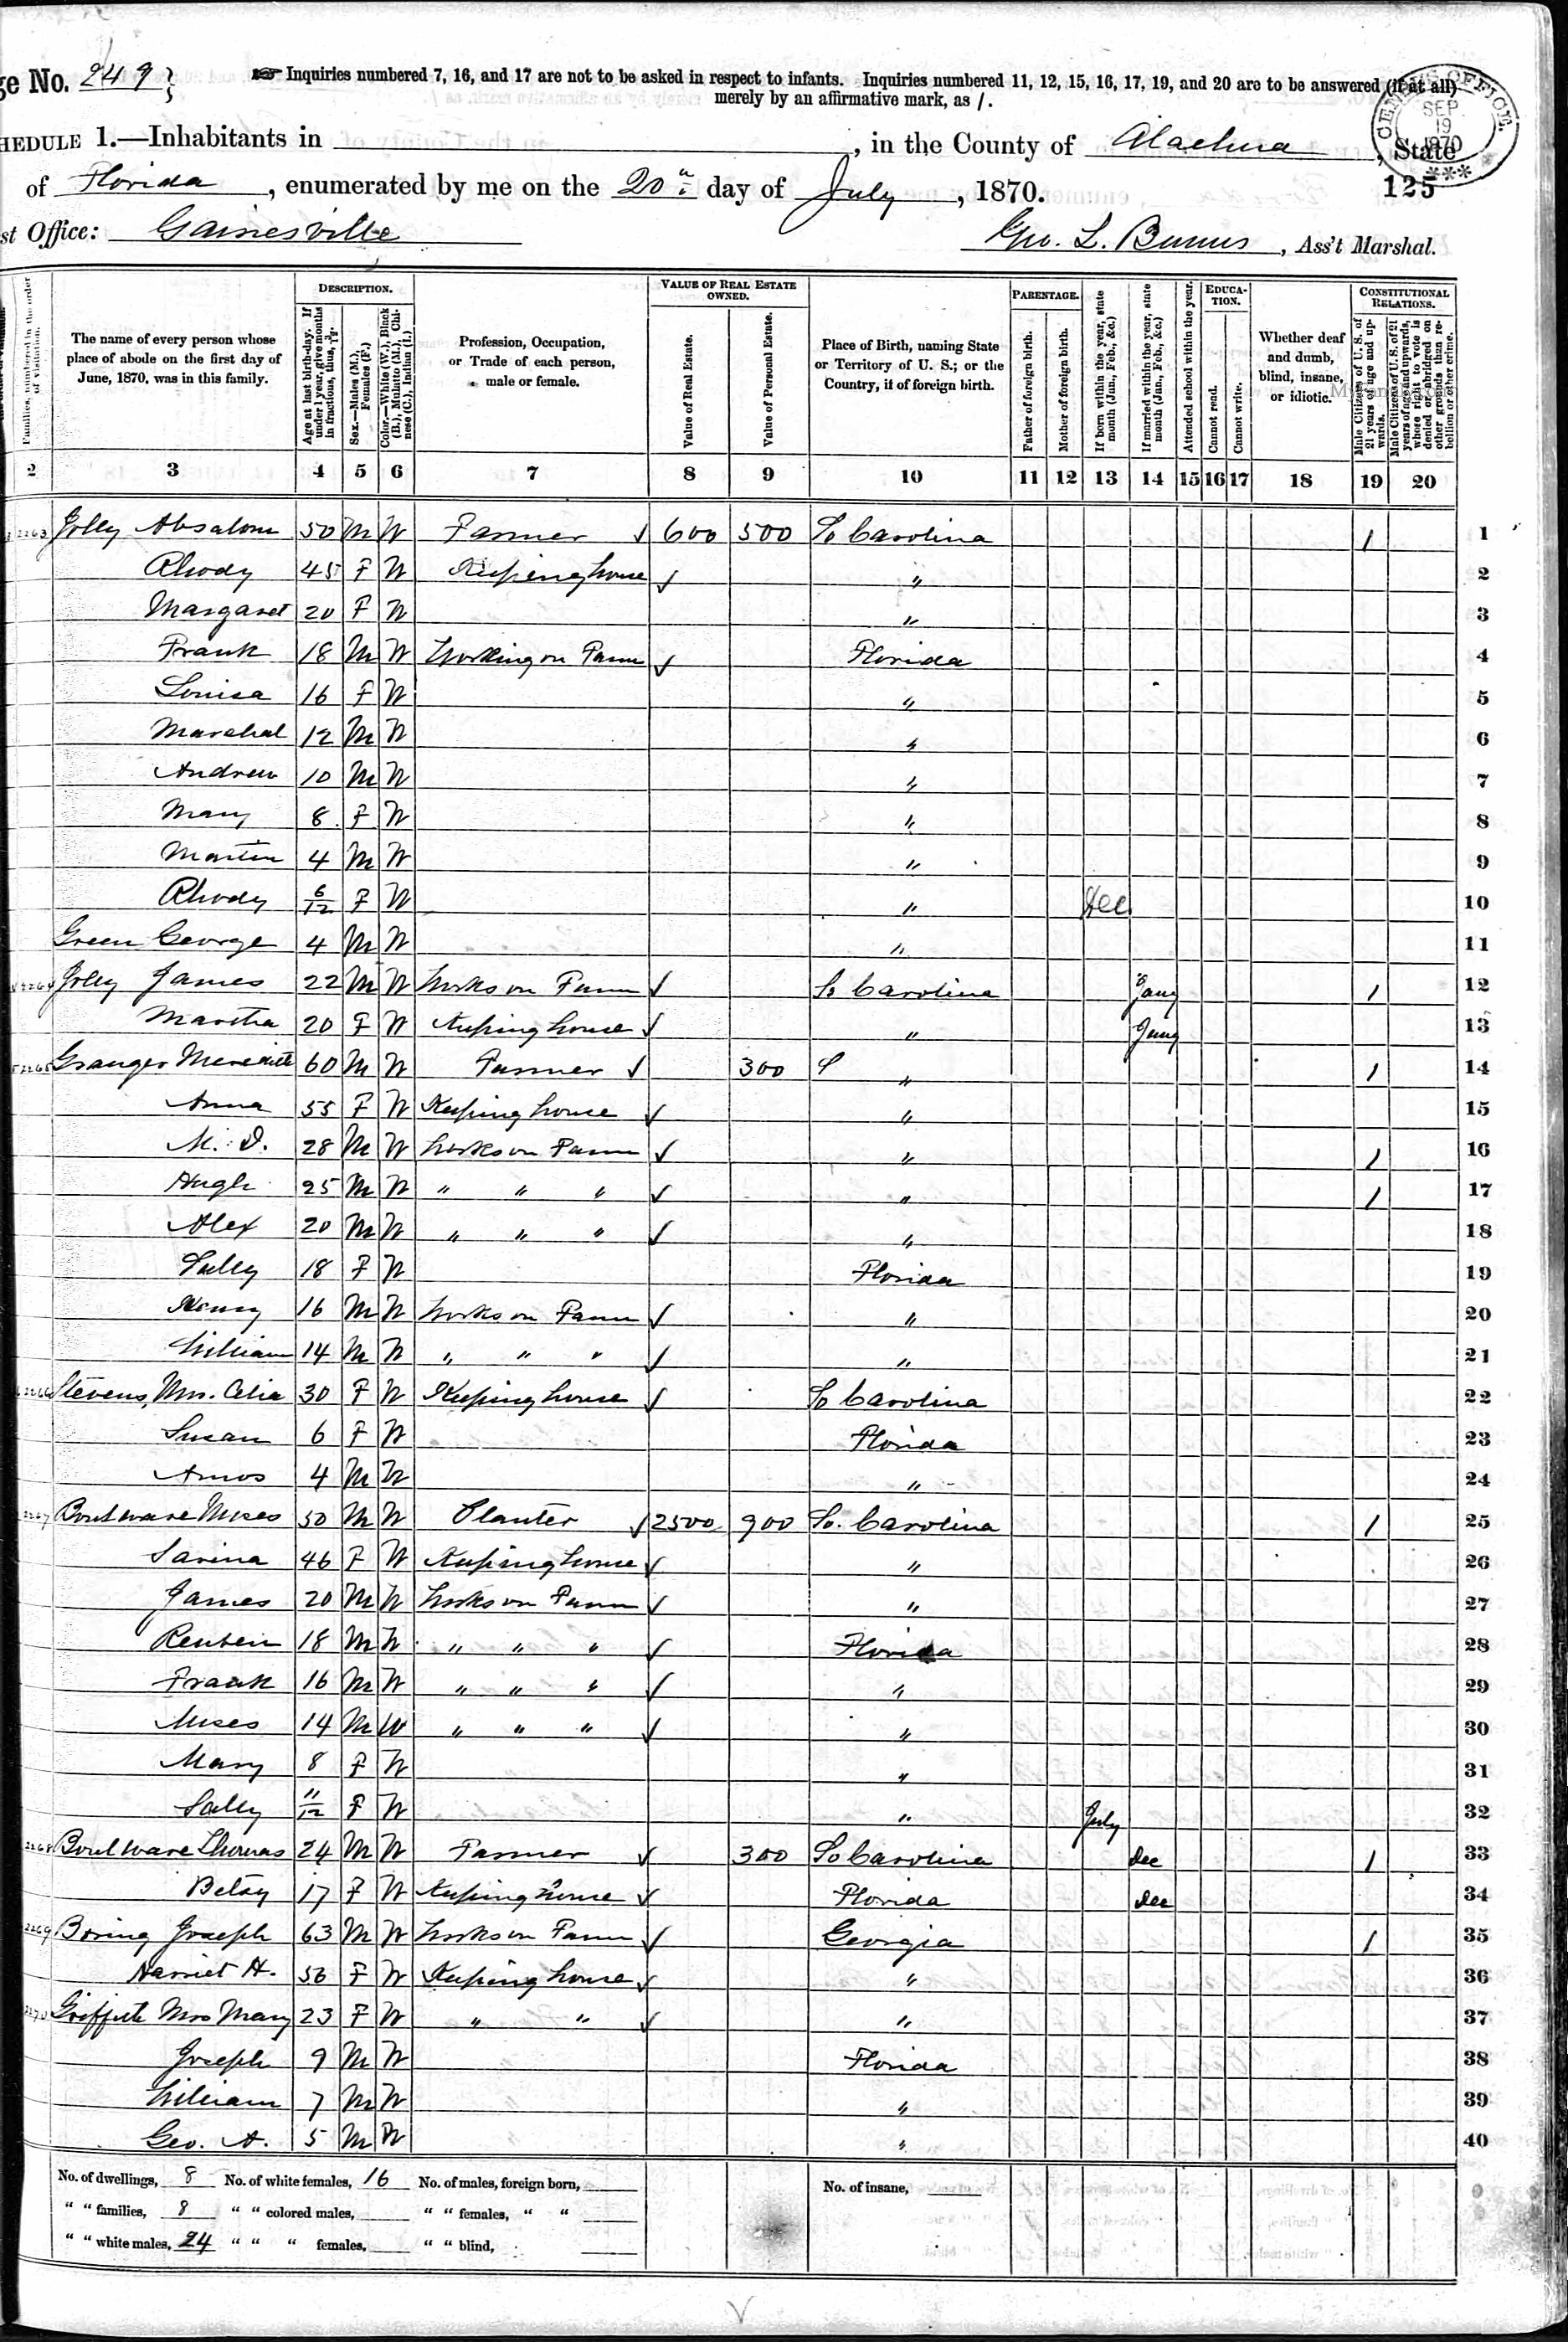 ge No. 249
Inquiries numbered 7, 16, and 17 are not to be asked in respect to infants. Inquiries numbered 11, 12, 15, 16, 17, 19, and 20 are to be answered (if at all)
merely by an affirmative mark, as /.
CENSUS OFFICE. SEP 19 1870
HEDULE 1.—Inhabitants in , in the County of Alachua, State
of Florida, enumerated by me on the 20" day of July, 1870. 125
st Office: Gainesville Geo. L. , Ass't Marshal.
Families, numbered in the order of visitation.
The name of every person whose place of abode on the first day of June, 1870, was in this family.
DESCRIPTION.
Age at last birth-day. If under 1 year, give months in fractions, thus, 3/12
Sex.—Males (M.), Females (F.)
Color.—White (W.), Black (B.), Mulatto (M.), Chinese (C.), Indian (I.)
Profession, Occupation, or Trade of each person, male or female.
VALUE OF REAL ESTATE OWNED.
Value of Real Estate.
Value of Personal Estate.
Place of Birth, naming State or Territory of U. S.; or the Country, if of foreign birth.
PARENTAGE.
Father of foreign birth.
Mother of foreign birth.
If born within the year, state month (Jan., Feb., &c.)
If married within the year, state month (Jan., Feb., &c.)
Attended school within the year.
EDUCATION.
Cannot read.
Cannot write.
Whether deaf and dumb, blind, insane, or idiotic.
CONSTITUTIONAL RELATIONS.
Male Citizens of U. S. of 21 years of age and upwards.
Male Citizens of U. S. of 21 years of age and upwards, whose right to vote is denied or abridged on other grounds than rebellion or other crime.
2 3 4 5 6 7 8 9 10 11 12 13 14 15 16 17 18 19 20
2263 Jolly Absalom 50 M W Farmer ✓ 600 500 So Carolina / 1
Rhody 45 F W Keeping house ✓ " 2
Margaret 20 F W " 3
Frank 18 M W Working on Farm ✓ Florida 4
Louisa 16 F W " 5
Marshal 12 M W " 6
Andrew 10 M W " 7
Mary 8 F W " 8
Martin 4 M W " 9
Rhody 6/12 F W " Dec 10
Green George 4 M W " 11
2264 Jolly James 22 M W Works on Farm ✓ So Carolina Jany / 12
Martha 20 F W Keeping house ✓ " Jany 13
2265 Granger Meredith 60 M W Farmer ✓ 300 S " / 14
Anna 55 F W Keeping house ✓ " 15
M. D. 28 M W Works on Farm ✓ " / 16
Hugh 25 M W " " " ✓ " / 17
Alex 20 M W " " " ✓ " 18
Sally 18 F W Florida 19
Henry 16 M W Works on Farm ✓ " 20
William 14 M W " " " ✓ " 21
2266 Stevens, Mrs. Celia 30 F W Keeping house ✓ So Carolina 22
Susan 6 F W Florida 23
Amos 4 M W " 24
2267 Boulware Moses 50 M W Planter ✓ 2500 900 So. Carolina / 25
Savina 46 F W Keeping house ✓ " 26
James 20 M W Works on Farm ✓ " 27
Reuben 18 M W " " " ✓ Florida 28
Frank 16 M W " " " ✓ " 29
Moses 14 M W " " " ✓ " 30
Mary 8 F W " 31
Sally 11/12 F W " July 32
2268 Boulware Thomas 24 M W Farmer ✓ 300 So Carolina Dec / 33
Betsy 17 F W Keeping house ✓ Florida Dec 34
2269 Boring Joseph 63 M W Works on Farm ✓ Georgia / 35
Harriet H. 56 F W Keeping house ✓ " 36
2270 Griffith Mrs Mary 23 F W " " ✓ " 37
Joseph 9 M W Florida 38
William 7 M W " 39
Geo. A. 5 M W " 40
No. of dwellings, 8 No. of white females, 16 No. of males, foreign born, No. of insane,
" " families, 8 " " colored males, " " females, " "
" " white males, 24 " " " females, " " blind,